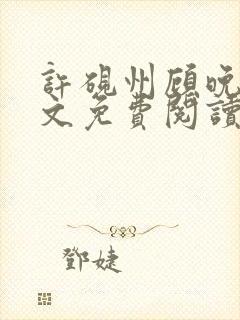 許硯州顧晚
文免費閱讀
鄧婕